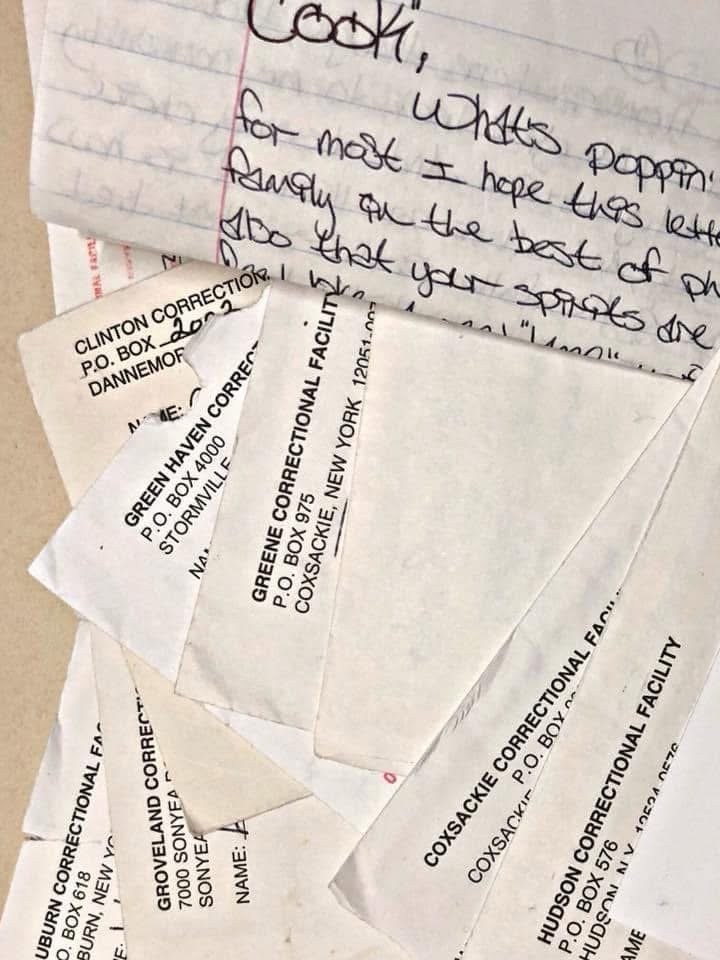 Cook,
What's poppin'
for most I hope this lette
family in the best of ph
also that your spirits are
CLINTON CORRECTION
P.O. BOX 2002
DANNEMOR
GREEN HAVEN CORREC
P.O. BOX 4000
STORMVILLE
NA
GREENE CORRECTIONAL FACILIT
P.O. BOX 975
COXSACKIE, NEW YORK 12051-
UBURN CORRECTIONAL FA
O. BOX 618
BURN, NEW YO
E:
GROVELAND CORRECT
7000 SONYEA
SONYEA
NAME:
COXSACKIE CORRECTIONAL FACI
P.O. BOX
COXSACKIE
HUDSON CORRECTIONAL FACILITY
P.O. BOX 576
HUDSON, N.Y. 12534-0576
AME